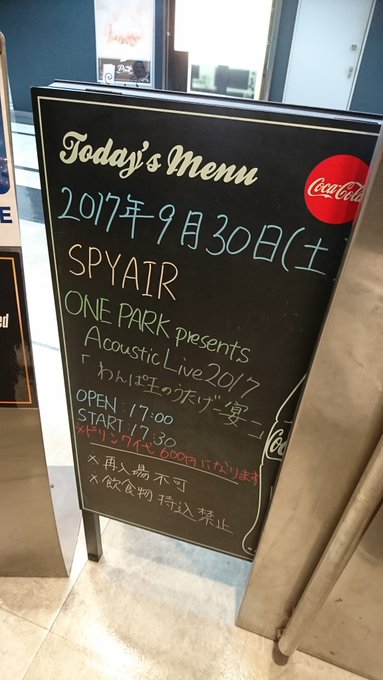 Today's Menu
Coca-Cola
2017年9月30日(土
SPYAIR
ONE PARK presents
Acoustic Live 2017
「わんぱ王のうたげ-宴-」
OPEN:17:00
START:17:30
※ドリンク代600円になります
※再入場不可
※飲食物持込禁止